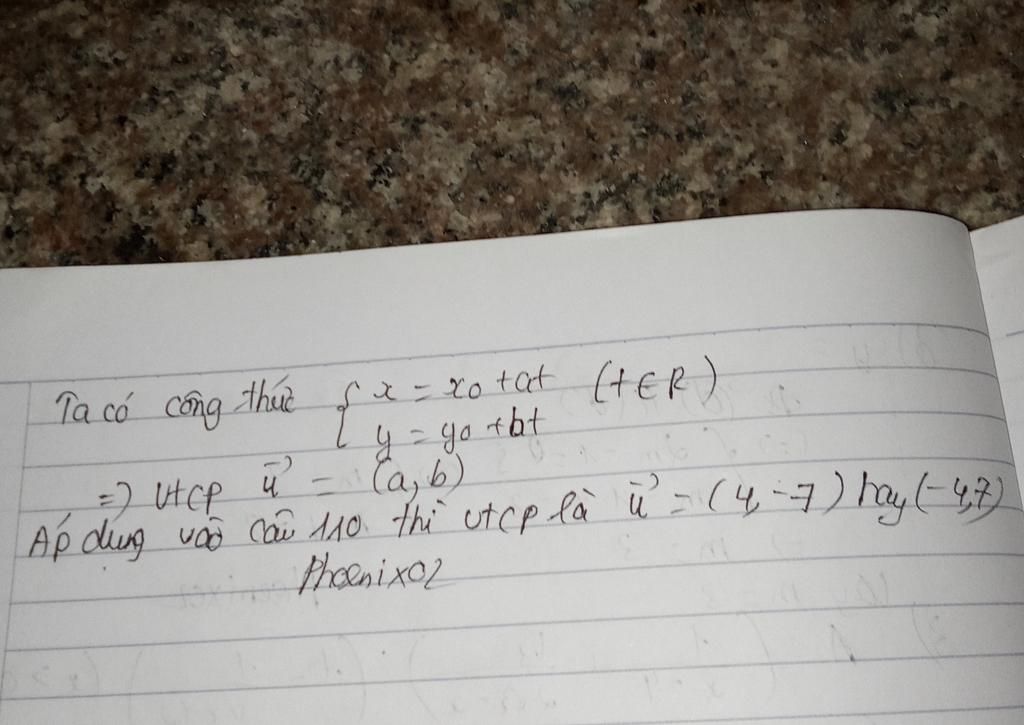 Ta có công thức { x = x0 + at (t ∈ R)
y = y0 + bt
=> vtcp u⃗ = (a, b)
Áp dụng vào câu 110 thì vtcp là u⃗ = (4, -7) hay (-4, 7)
Phoenix02